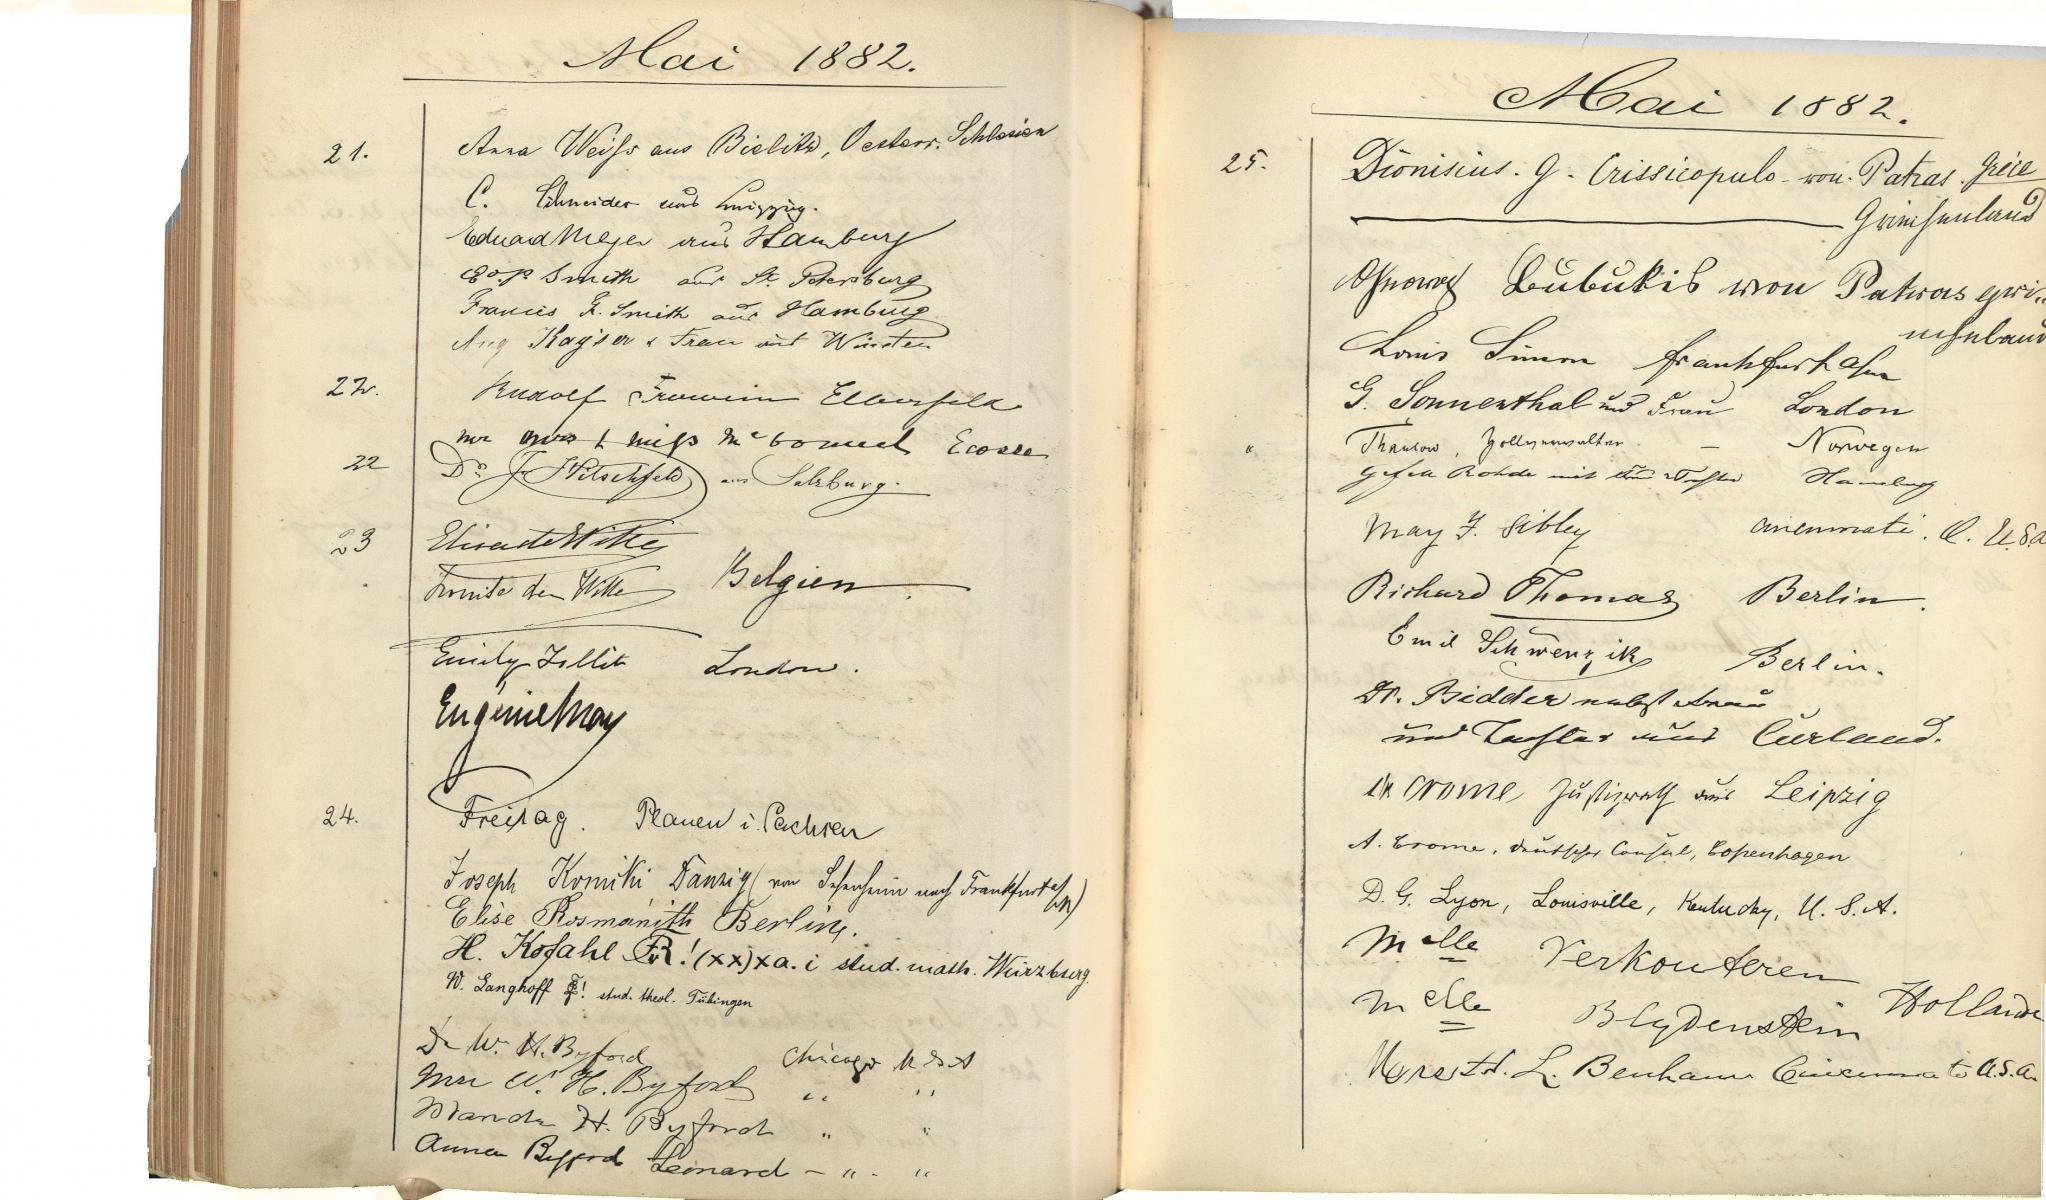 Mai 1882.
21. Anna Weiss aus Bielitz, Oesterr. Schlesien
C. Schneider aus Leipzig.
Eduard Meyer aus Hamburg
Smith aus St. Petersburg
Francis F. Smith aus Hamburg
Aug Kayser & Frau aus Winsten
22. Rudolf Frowein Elberfeld
Ecosse
22 Dr. J. aus Salzburg.
23
de Witte Belgien
Emily London.
Eugénie May
24. Freitag. Plauen i. Sachsen
Joseph Komiki Danzig (von nach Frankfurt a/M)
Elise Rosmanith Berlin.
H. Kofahl (xx)xa. i stud. math. Würzburg.
W. Langhoff stud. theol. Tübingen
Dr W. H. Byford Chicago U S A
Mrs W. H. Byford " "
H. Byford " "
Anna Byford Leonard - " - "
Mai 1882.
25. Dionisius. G. Crissicopulo von Patras. Grèce
Griechenland
von Patras
Louis Simon Frankfurt a/m
G. Sonnenthal und Frau London
" Thaulow, Zollverwalter — Norwegen
Rohde mit Frau Tochter Hamburg
May F. Sibley O. U.S.A
Richard Thomas Berlin.
Emil Schwenzik Berlin.
Dr. Bidder nebst Frau
und Tochter aus Curland.
Dr Crome Justizrath aus Leipzig
A. Crome, deutscher Consul, Copenhagen
D. G. Lyon, Louisville, Kentucky, U. S. A.
Melle Verkouteren
Melle Blydenstein Hollande
L. Benham Cincinnati U.S.A.